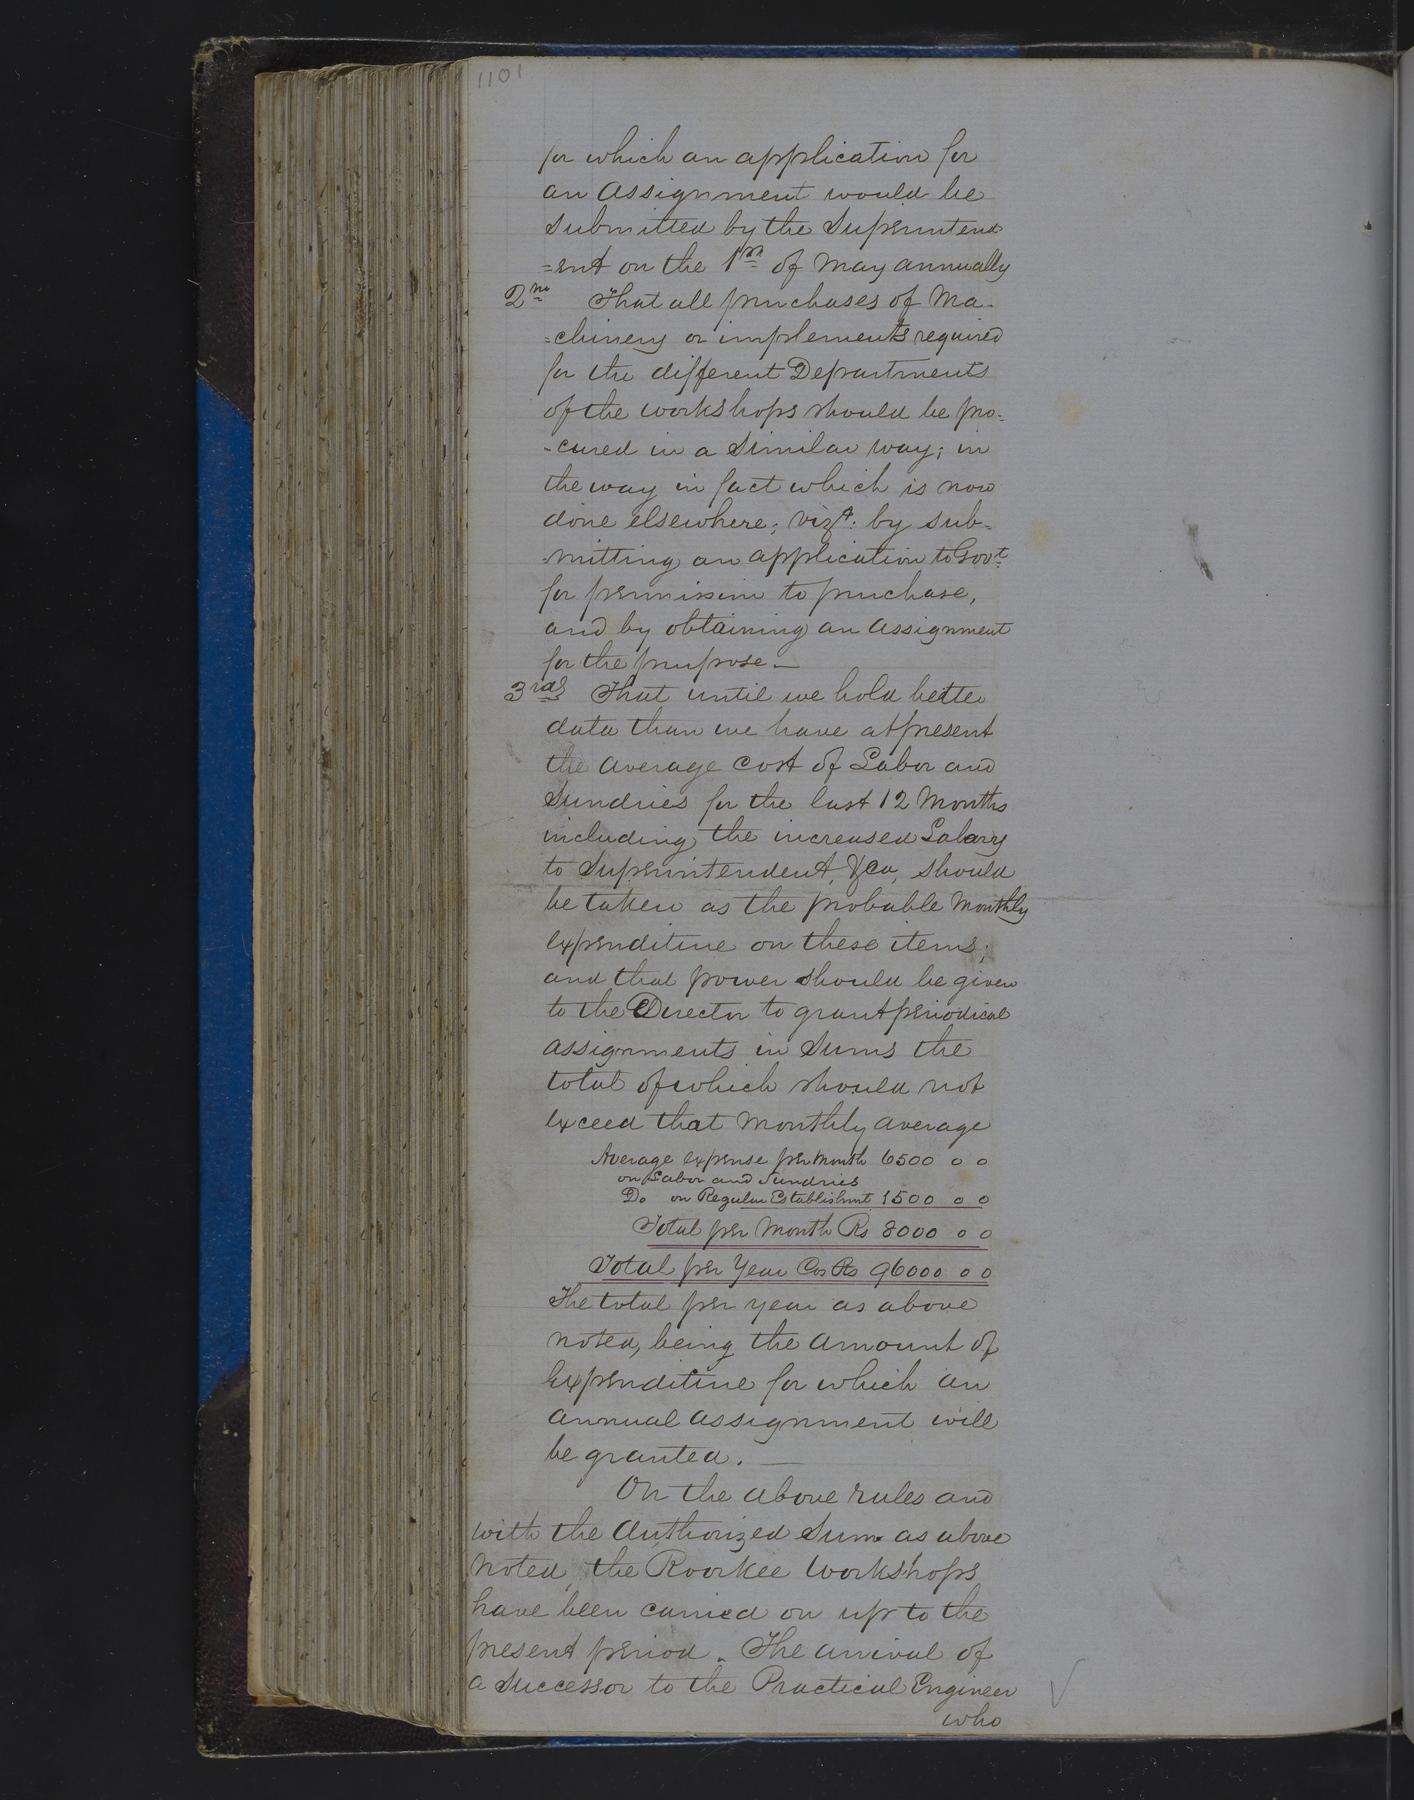 1101
for which an application for
an Assignment would be
submitted by the Superintend
=ent on the 1st of May annually
2nd That all purchases of Ma-
=chinery or implements required
for the different Departments
of the workshops should be pro=
-cured in a similar way; in
the way in fact which is now
done elsewhere; vizt: by sub=
-mitting an application to Govt
for permission to purchase,
and by obtaining an assignment
for the purpose. —
3rdly That until we hold better
data than we have at present
the average cost of Labor and
Sundries for the last 12 Months
including the increased Salary
to Superintendent, &ca, should
be taken as the probable Monthly
expenditure on these items;
and that power should be given
to the Director to grant periodical
assignments in sums the
total of which should not
exceed that monthly average
Average expense per month 6500 0 0
on Labor and Sundries
Do on Regular Establishmt 1500 0 0
Total per Month Rs 8000 0 0
Total per Year Cos Rs 96000 0 0
The total per year as above
noted, being the amount of
Expenditure for which an
annual assignment will
be granted. —
On the above rules and
with the authorized Sum as above
noted, the Roorkee Workshops
have been carried on up to the
present period. The arrival of
a successor to the Practical Engineer
who